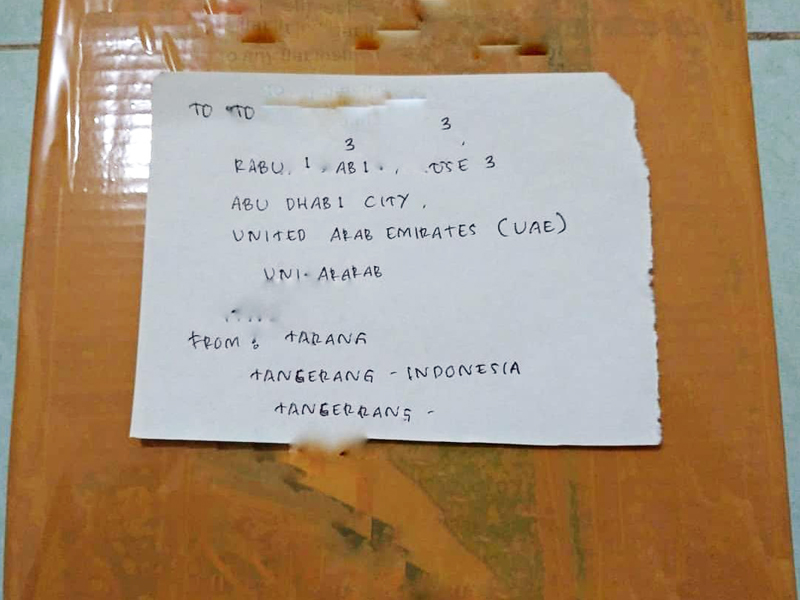 TO TO
3
3
RABU. 1. AB1., USE 3
ABU DHABI CITY,
UNITED ARAB EMIRATES (UAE)
UNI. ARARAB
FROM : TARANG
TANGERANG - INDONESIA
TANGERRANG -